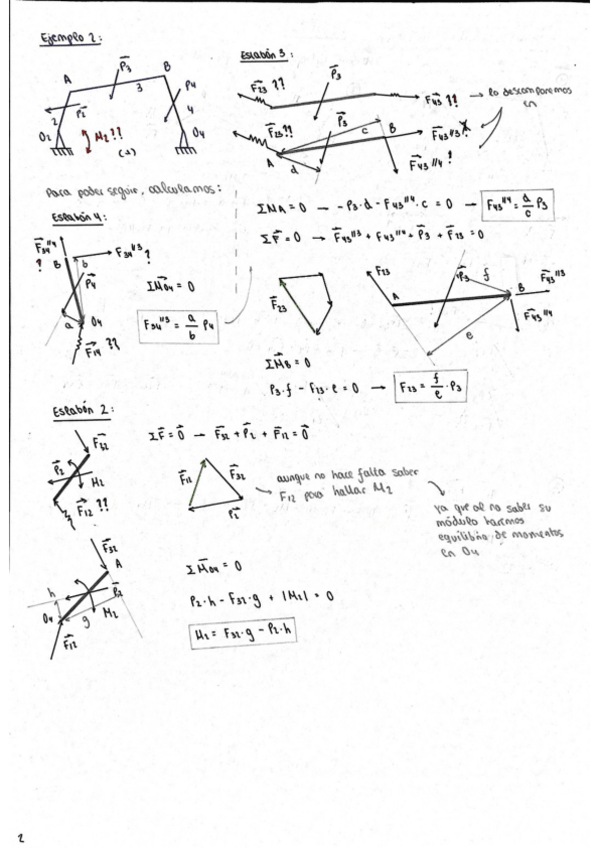 Ejemplo 2:
A
P3
B
3
P4
P2
2
4
O2
M2 ??
(+)
O4
Eslabón 3:
F23 ??
P3
F43 ??
lo descomponemos
en
F23 ??
P3
c
B
F43 //3 ?
A
d
F43 //4 ?
Para poder seguir, calculamos:
ΣMA = 0 — -P3·d - F43//4·c = 0 → F43//4 = d/c P3
ΣF = 0 → F43//3 + F43//4 + P3 + F23 = 0
Eslabón 4:
F34//4
?
B
b
F34//3 ?
P4
a
O4
F14 ??
ΣMO4 = 0
F34//3 = a/b P4
F23
F23
A
P3
f
B
F43//3
F43//4
e
ΣMB = 0
P3·f - F23·e = 0 → F23 = f/e · P3
Eslabón 2:
F32
P2
M2
F12 ??
ΣF = 0 — F32 + P2 + F12 = 0
F12
F32
P2
aunque no hace falta saber
F12 para hallar M2
ya que al no saber su
módulo haremos
equilibrio de momentos
en O4
F32
A
h
P2
O4
g
M2
F12
ΣMO4 = 0
P2·h - F32·g + |M2| = 0
M2 = F32·g - P2·h
2